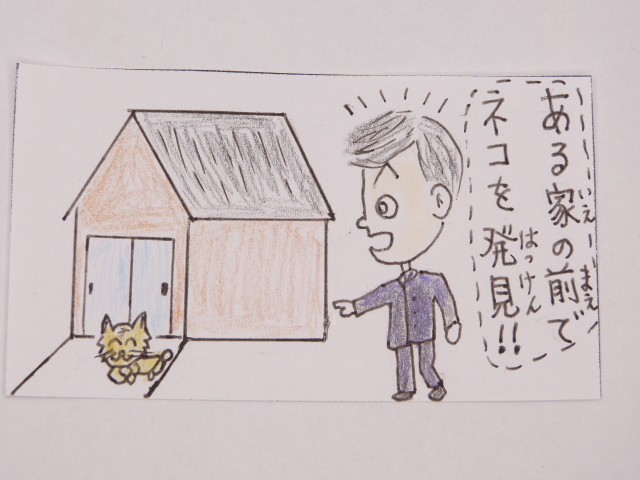 ある家の前で
いえ まえ
ネコを発見!!
はっけん